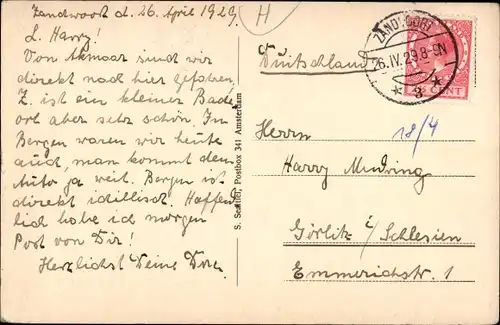 Zandvoort d. 26. April 1929.
L. Harry!
Von Alkmaar sind wir
direkt nach hier gefahren,
Z. ist ein kleiner Bade
ort aber sehr schön. In
Bergen waren wir heute
auch, man kommt dem
Auto ja weit. Bergen ist
direkt idillisch. Hoffent
lich habe ich morgen
Post von Dir!
Herzlichst Deine Dora
H
S. Postbox 341 Amsterdam
Duitschland
ZANDVOORT
26.IV.29.8-9N
* 3 *
CENT
Herrn
18/4
Harry
Görlitz i/ Schlesien
Emmerichstr. 1